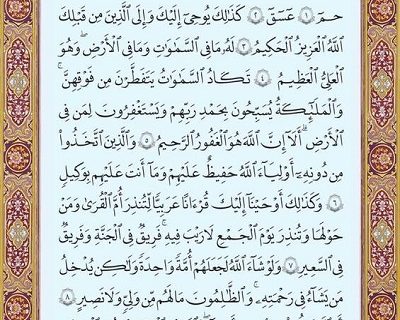 حمٓ ١ عٓسٓقٓ ٢ كَذَٰلِكَ يُوحِىٓ إِلَيْكَ وَإِلَى ٱلَّذِينَ مِن قَبْلِكَ
ٱللَّهُ ٱلْعَزِيزُ ٱلْحَكِيمُ ٣ لَهُۥ مَا فِى ٱلسَّمَٰوَٰتِ وَمَا فِى ٱلْأَرْضِ ۖ وَهُوَ
ٱلْعَلِىُّ ٱلْعَظِيمُ ٤ تَكَادُ ٱلسَّمَٰوَٰتُ يَتَفَطَّرْنَ مِن فَوْقِهِنَّ ۚ
وَٱلْمَلَٰٓئِكَةُ يُسَبِّحُونَ بِحَمْدِ رَبِّهِمْ وَيَسْتَغْفِرُونَ لِمَن فِى
ٱلْأَرْضِ ۗ أَلَآ إِنَّ ٱللَّهَ هُوَ ٱلْغَفُورُ ٱلرَّحِيمُ ٥ وَٱلَّذِينَ ٱتَّخَذُوا۟
مِن دُونِهِۦٓ أَوْلِيَآءَ ٱللَّهُ حَفِيظٌ عَلَيْهِمْ وَمَآ أَنتَ عَلَيْهِم بِوَكِيلٍ
٦ وَكَذَٰلِكَ أَوْحَيْنَآ إِلَيْكَ قُرْءَانًا عَرَبِيًّا لِّتُنذِرَ أُمَّ ٱلْقُرَىٰ وَمَنْ
حَوْلَهَا وَتُنذِرَ يَوْمَ ٱلْجَمْعِ لَا رَيْبَ فِيهِ ۚ فَرِيقٌ فِى ٱلْجَنَّةِ وَفَرِيقٌ
فِى ٱلسَّعِيرِ ٧ وَلَوْ شَآءَ ٱللَّهُ لَجَعَلَهُمْ أُمَّةً وَٰحِدَةً وَلَٰكِن يُدْخِلُ
مَن يَشَآءُ فِى رَحْمَتِهِۦ ۚ وَٱلظَّٰلِمُونَ مَا لَهُم مِّن وَلِىٍّ وَلَا نَصِيرٍ ٨